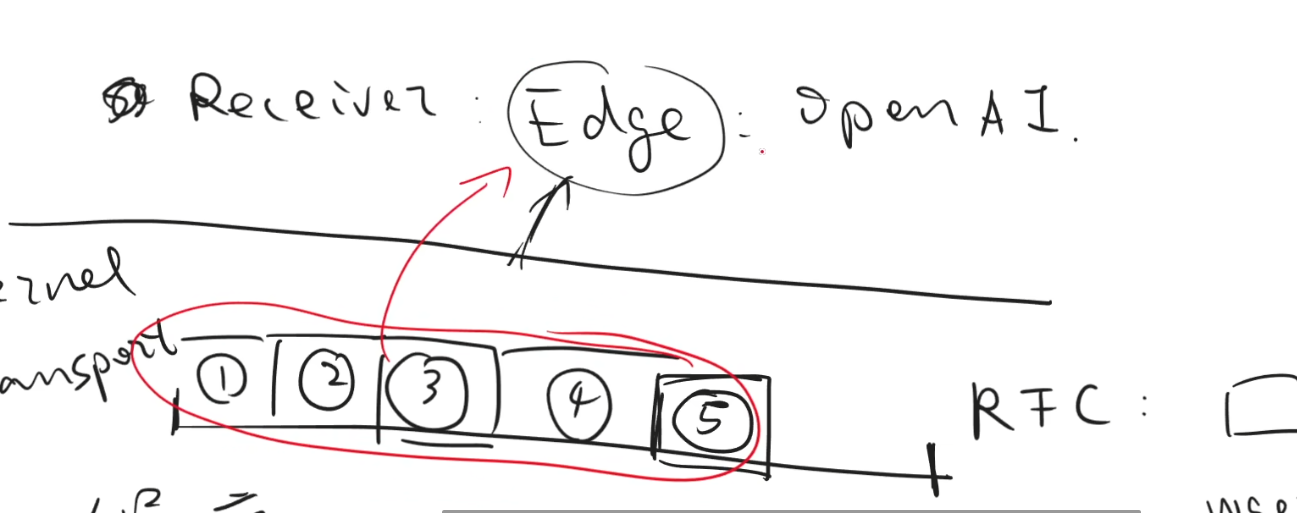 Receiver : Edge : OpenAI.
ernel
ansport ① ② ③ ④ ⑤ RFC :